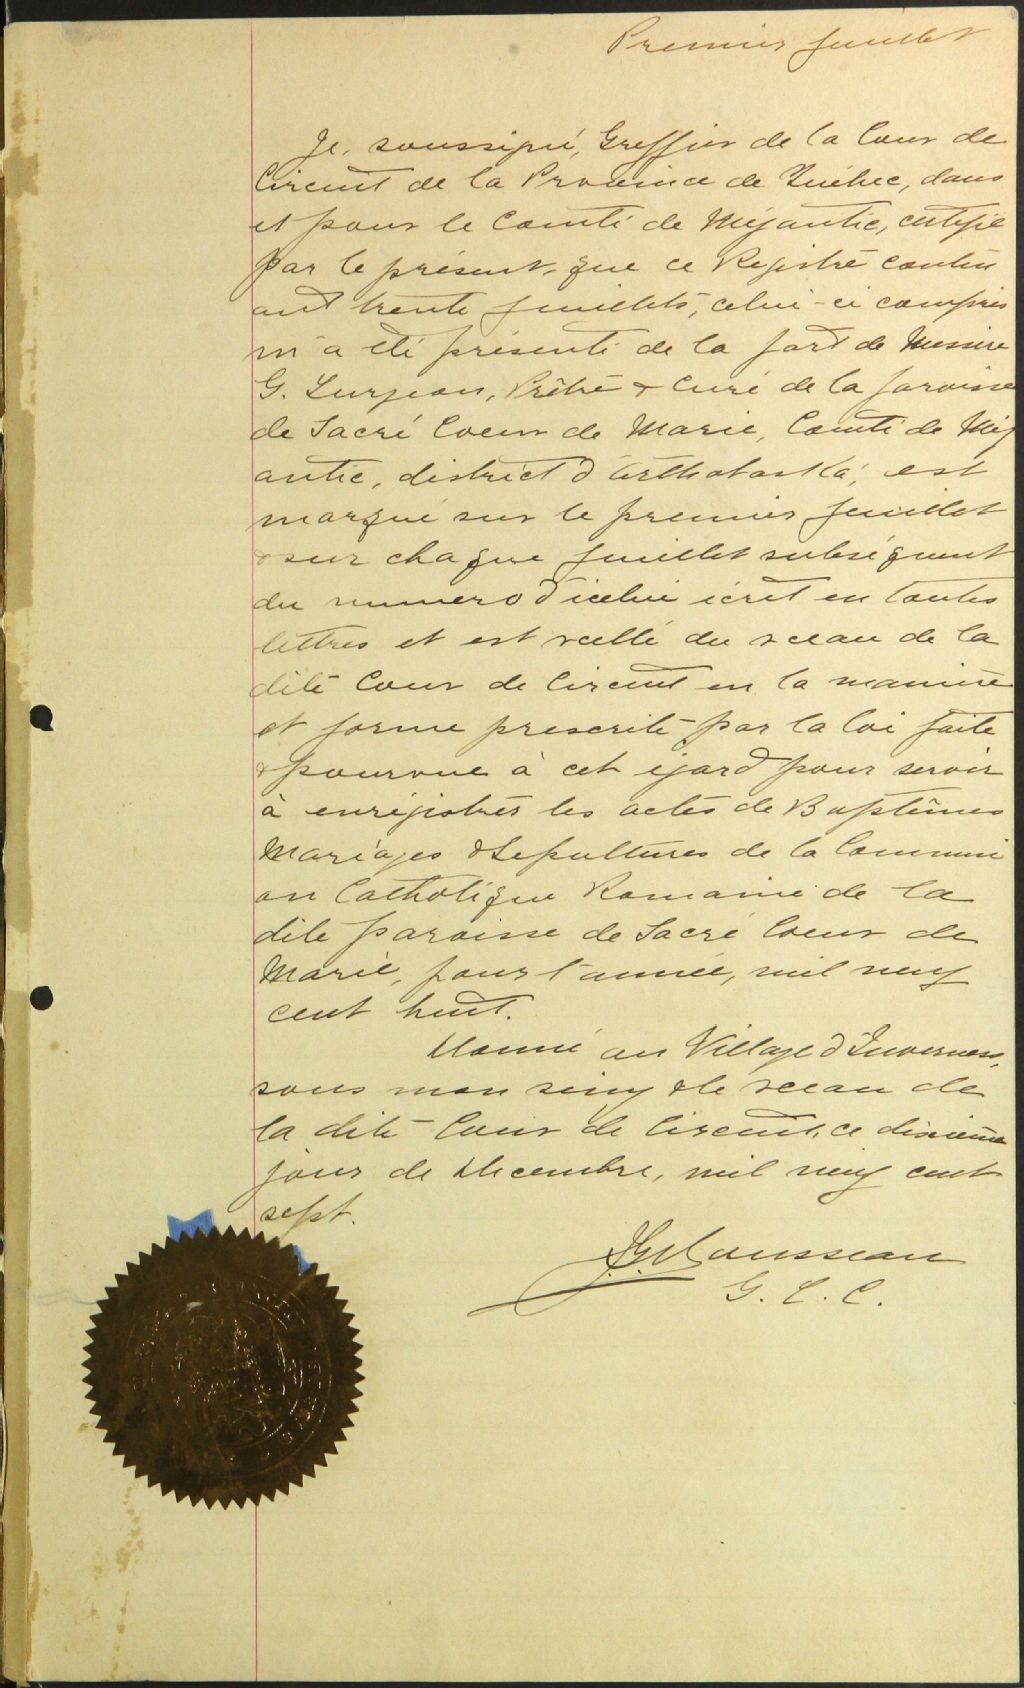 Premier feuillet
Je, soussigné, Greffier de la Cour de
Circuit de la Province de Québec, dans
et pour le Comté de Mégantic, certifie
par le présent, que ce Registre conten
ant trente feuillets, celui-ci compris
m'a été présenté de la part de Messire
G. Surjean, Prêtre & Curé de la paroisse
de Sacré Coeur de Marie, Comté de Még
antic, district d'Arthabaska, est
marqué sur le premier feuillet
& sur chaque feuillet subséquent
du numero d'icelui écrit en toutes
lettres et est scellé du sceau de la
dite Cour de Circuit en la manière
et forme prescrite par la loi faite
& pourvue à cet égard pour servir
à enrégistrer les actes de Baptêmes
Mariages & Sepultures de la Communi
on Catholique Romaine de la
dite paroisse de Sacré Coeur de
Marie, pour l'année, mil neuf
cent huit.
Donné au Village d'Inverness,
sous mon seing & le sceau de
la dite Cour de Circuit, ce dixième
jour de Décembre, mil neuf cent
sept.
Rousseau
G. C. C.